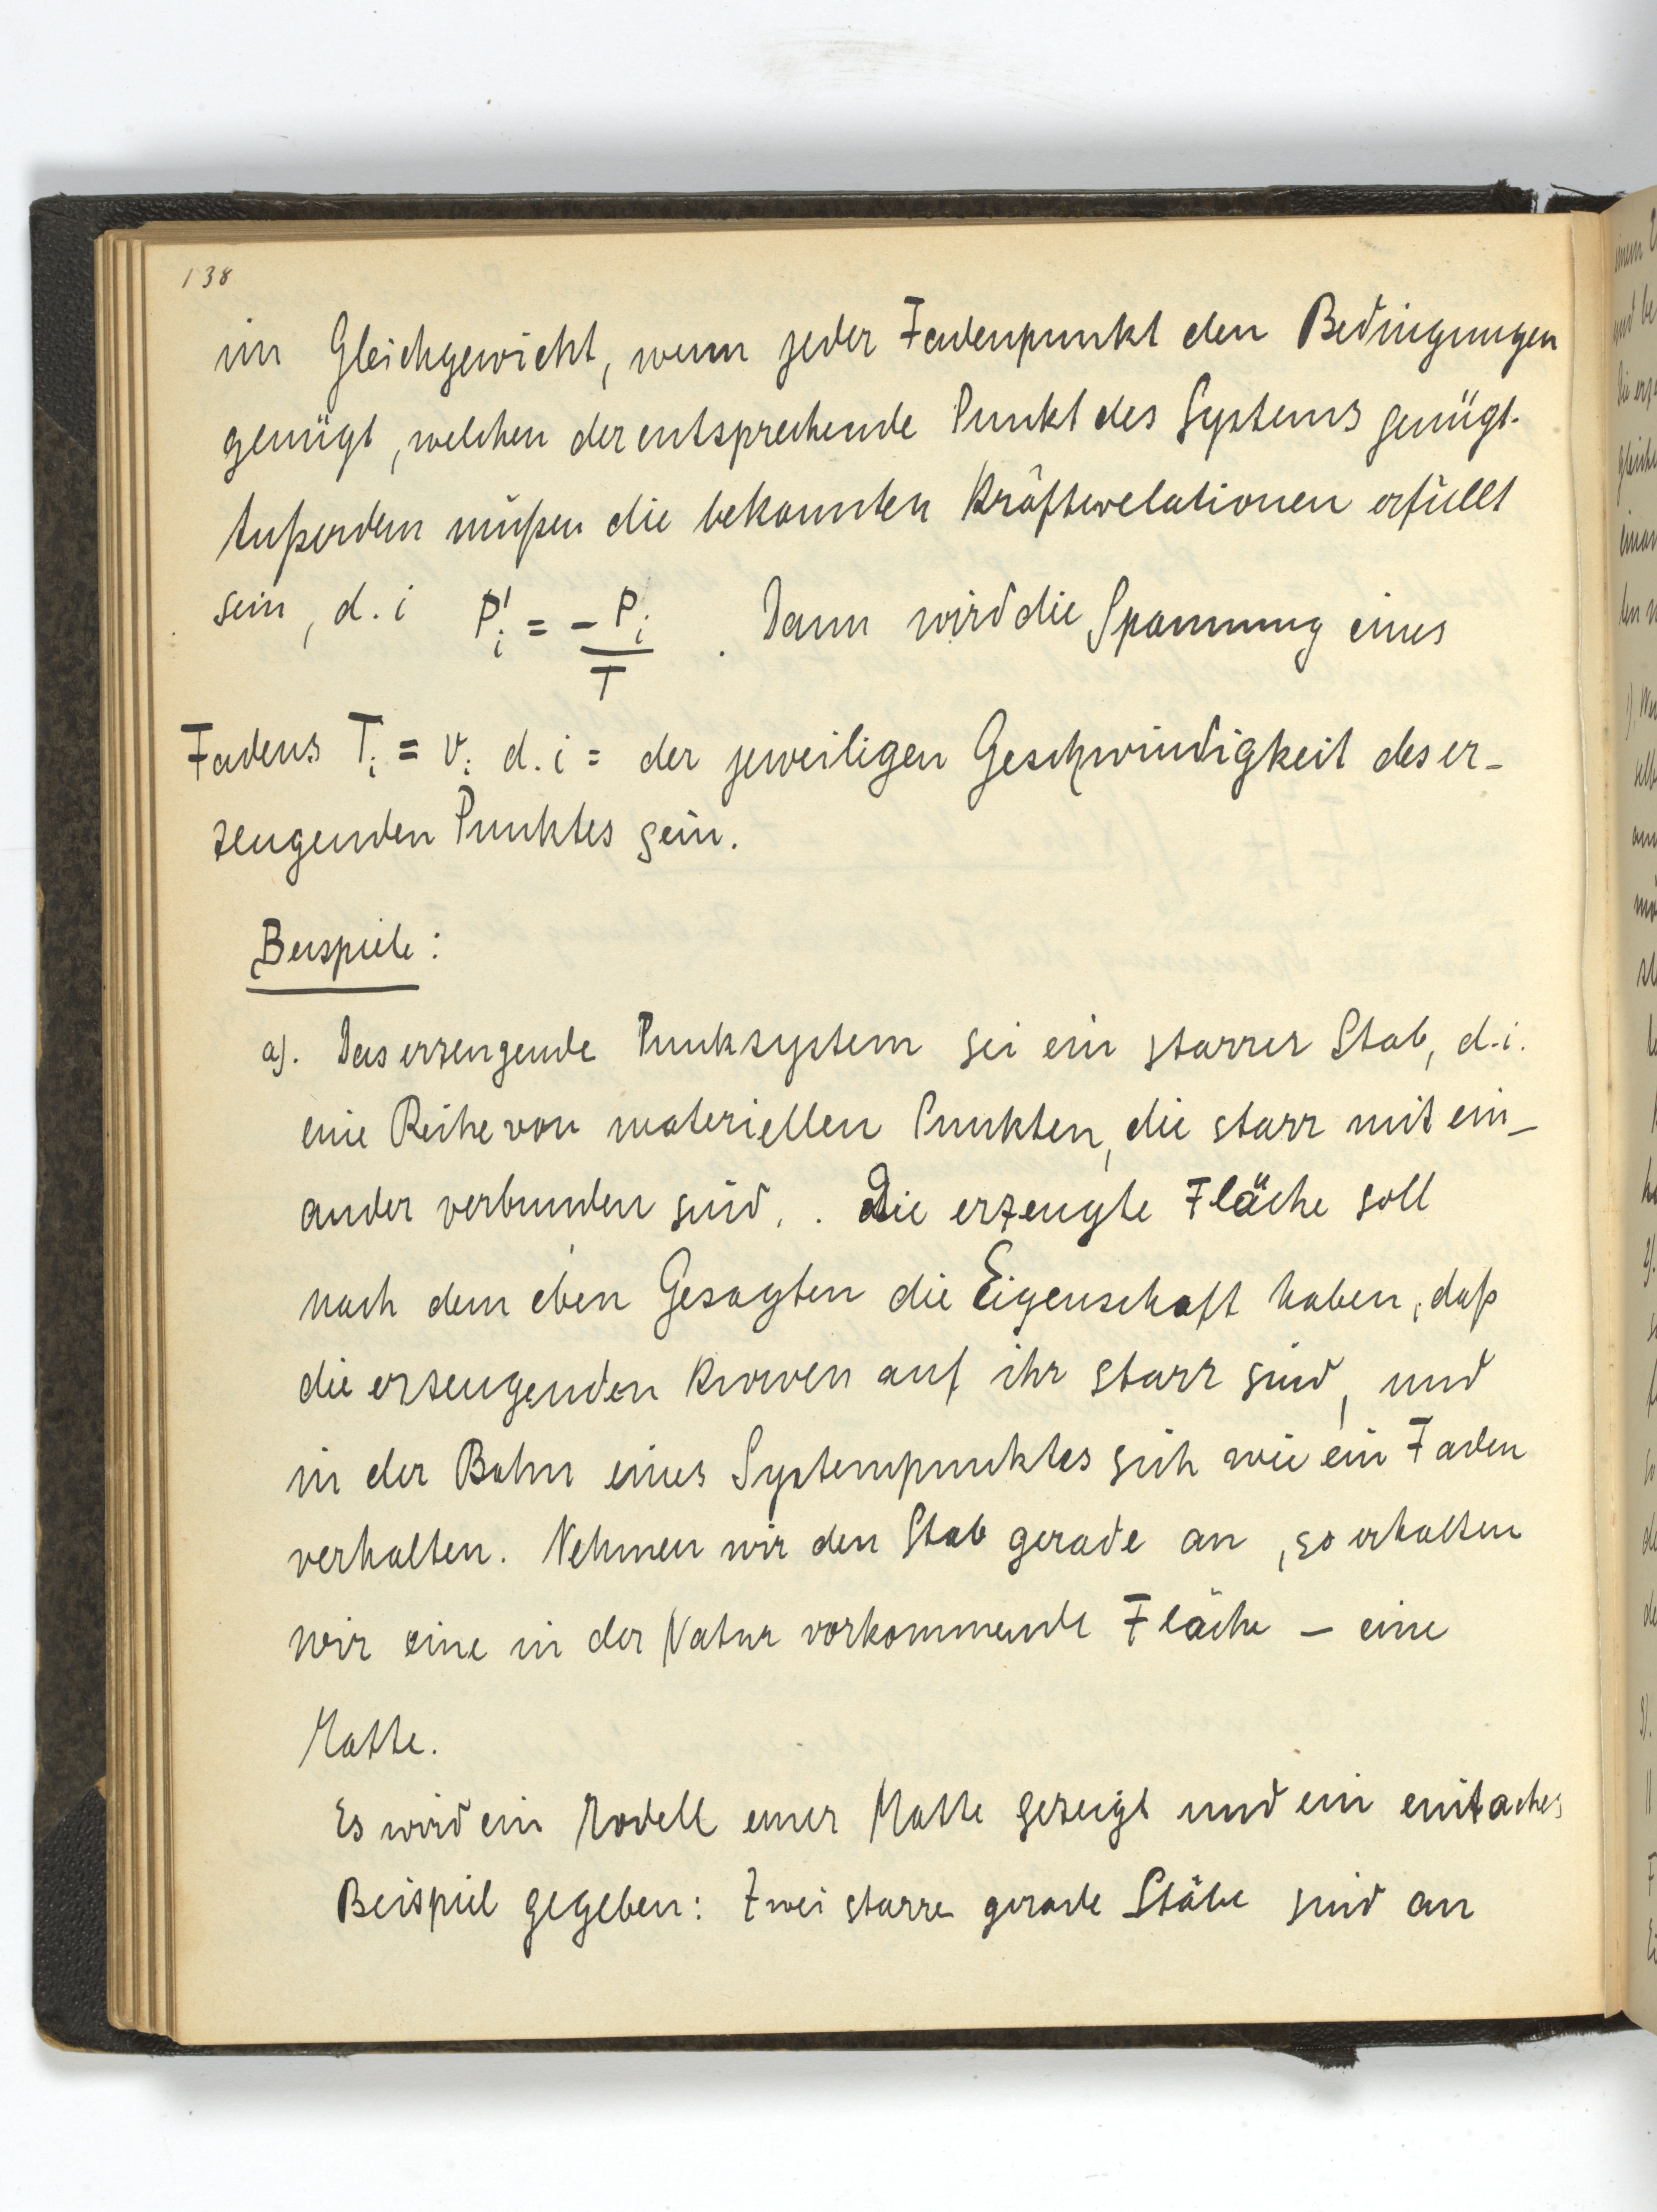 138
im Gleichgewicht, wenn jeder Fadenpunkt den Bedingungen
genügt, welchen der entsprechende Punkt des Systems genügt.
Außerdem müßen die bekannten Kräfterelationen erfüllt
sein, d. i P'ᵢ = - Pᵢ / T . Dann wird die Spannung eines
Fadens Tᵢ = vᵢ d. i = der jeweiligen Geschwindigkeit des er-
zeugenden Punktes sein.
Beispiele:
a). Das erzeugende Punksystem sei ein starrer Stab, d. i.
eine Reihe von materiellen Punkten, die starr mit ein-
ander verbunden sind. . Die erzeugte Fläche soll
nach dem eben Gesagten die Eigenschaft haben, daß
die erzeugenden Kurven auf ihr starr sind, und
in der Bahn eines Systempunktes sich wie ein Faden
verhalten. Nehmen wir den Stab gerade an, so erhalten
wir eine in der Natur vorkommende Fläche – eine
Matte.
Es wird ein Modell einer Matte gezeigt und ein einfaches
Beispiel gegeben: Zwei starre gerade Stäbe sind an